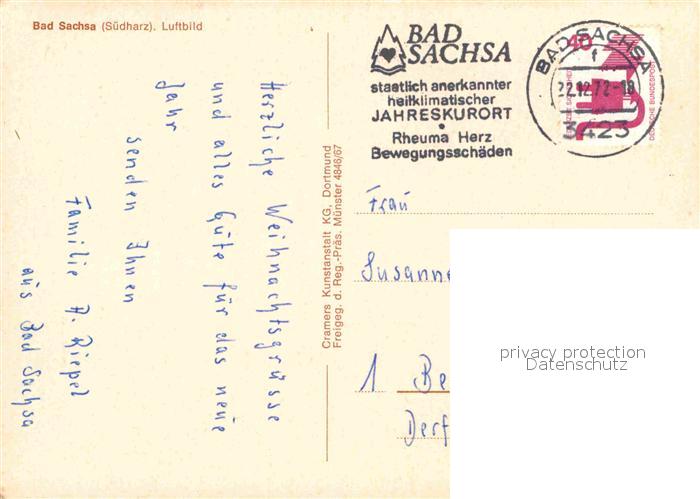 Bad Sachsa (Südharz). Luftbild
BAD
SACHSA
staatlich anerkannter
heilklimatischer
JAHRESKURORT
Rheuma Herz
Bewegungsschäden
BAD SACHSA
f
22.12.72-18
3423
40
DEUTSCHE BUNDESPOST
Herzliche Weihnachtsgrüsse
und alles Gute für das neue
Jahr
senden Ihnen
Familie A. Riepel
aus Bad Sachsa
Cramers Kunstanstalt KG, Dortmund
Freigeg. d. Reg.-Präs. Münster 4846/67
Frau
Susanne
1 Be
Derf
privacy protection
Datenschutz